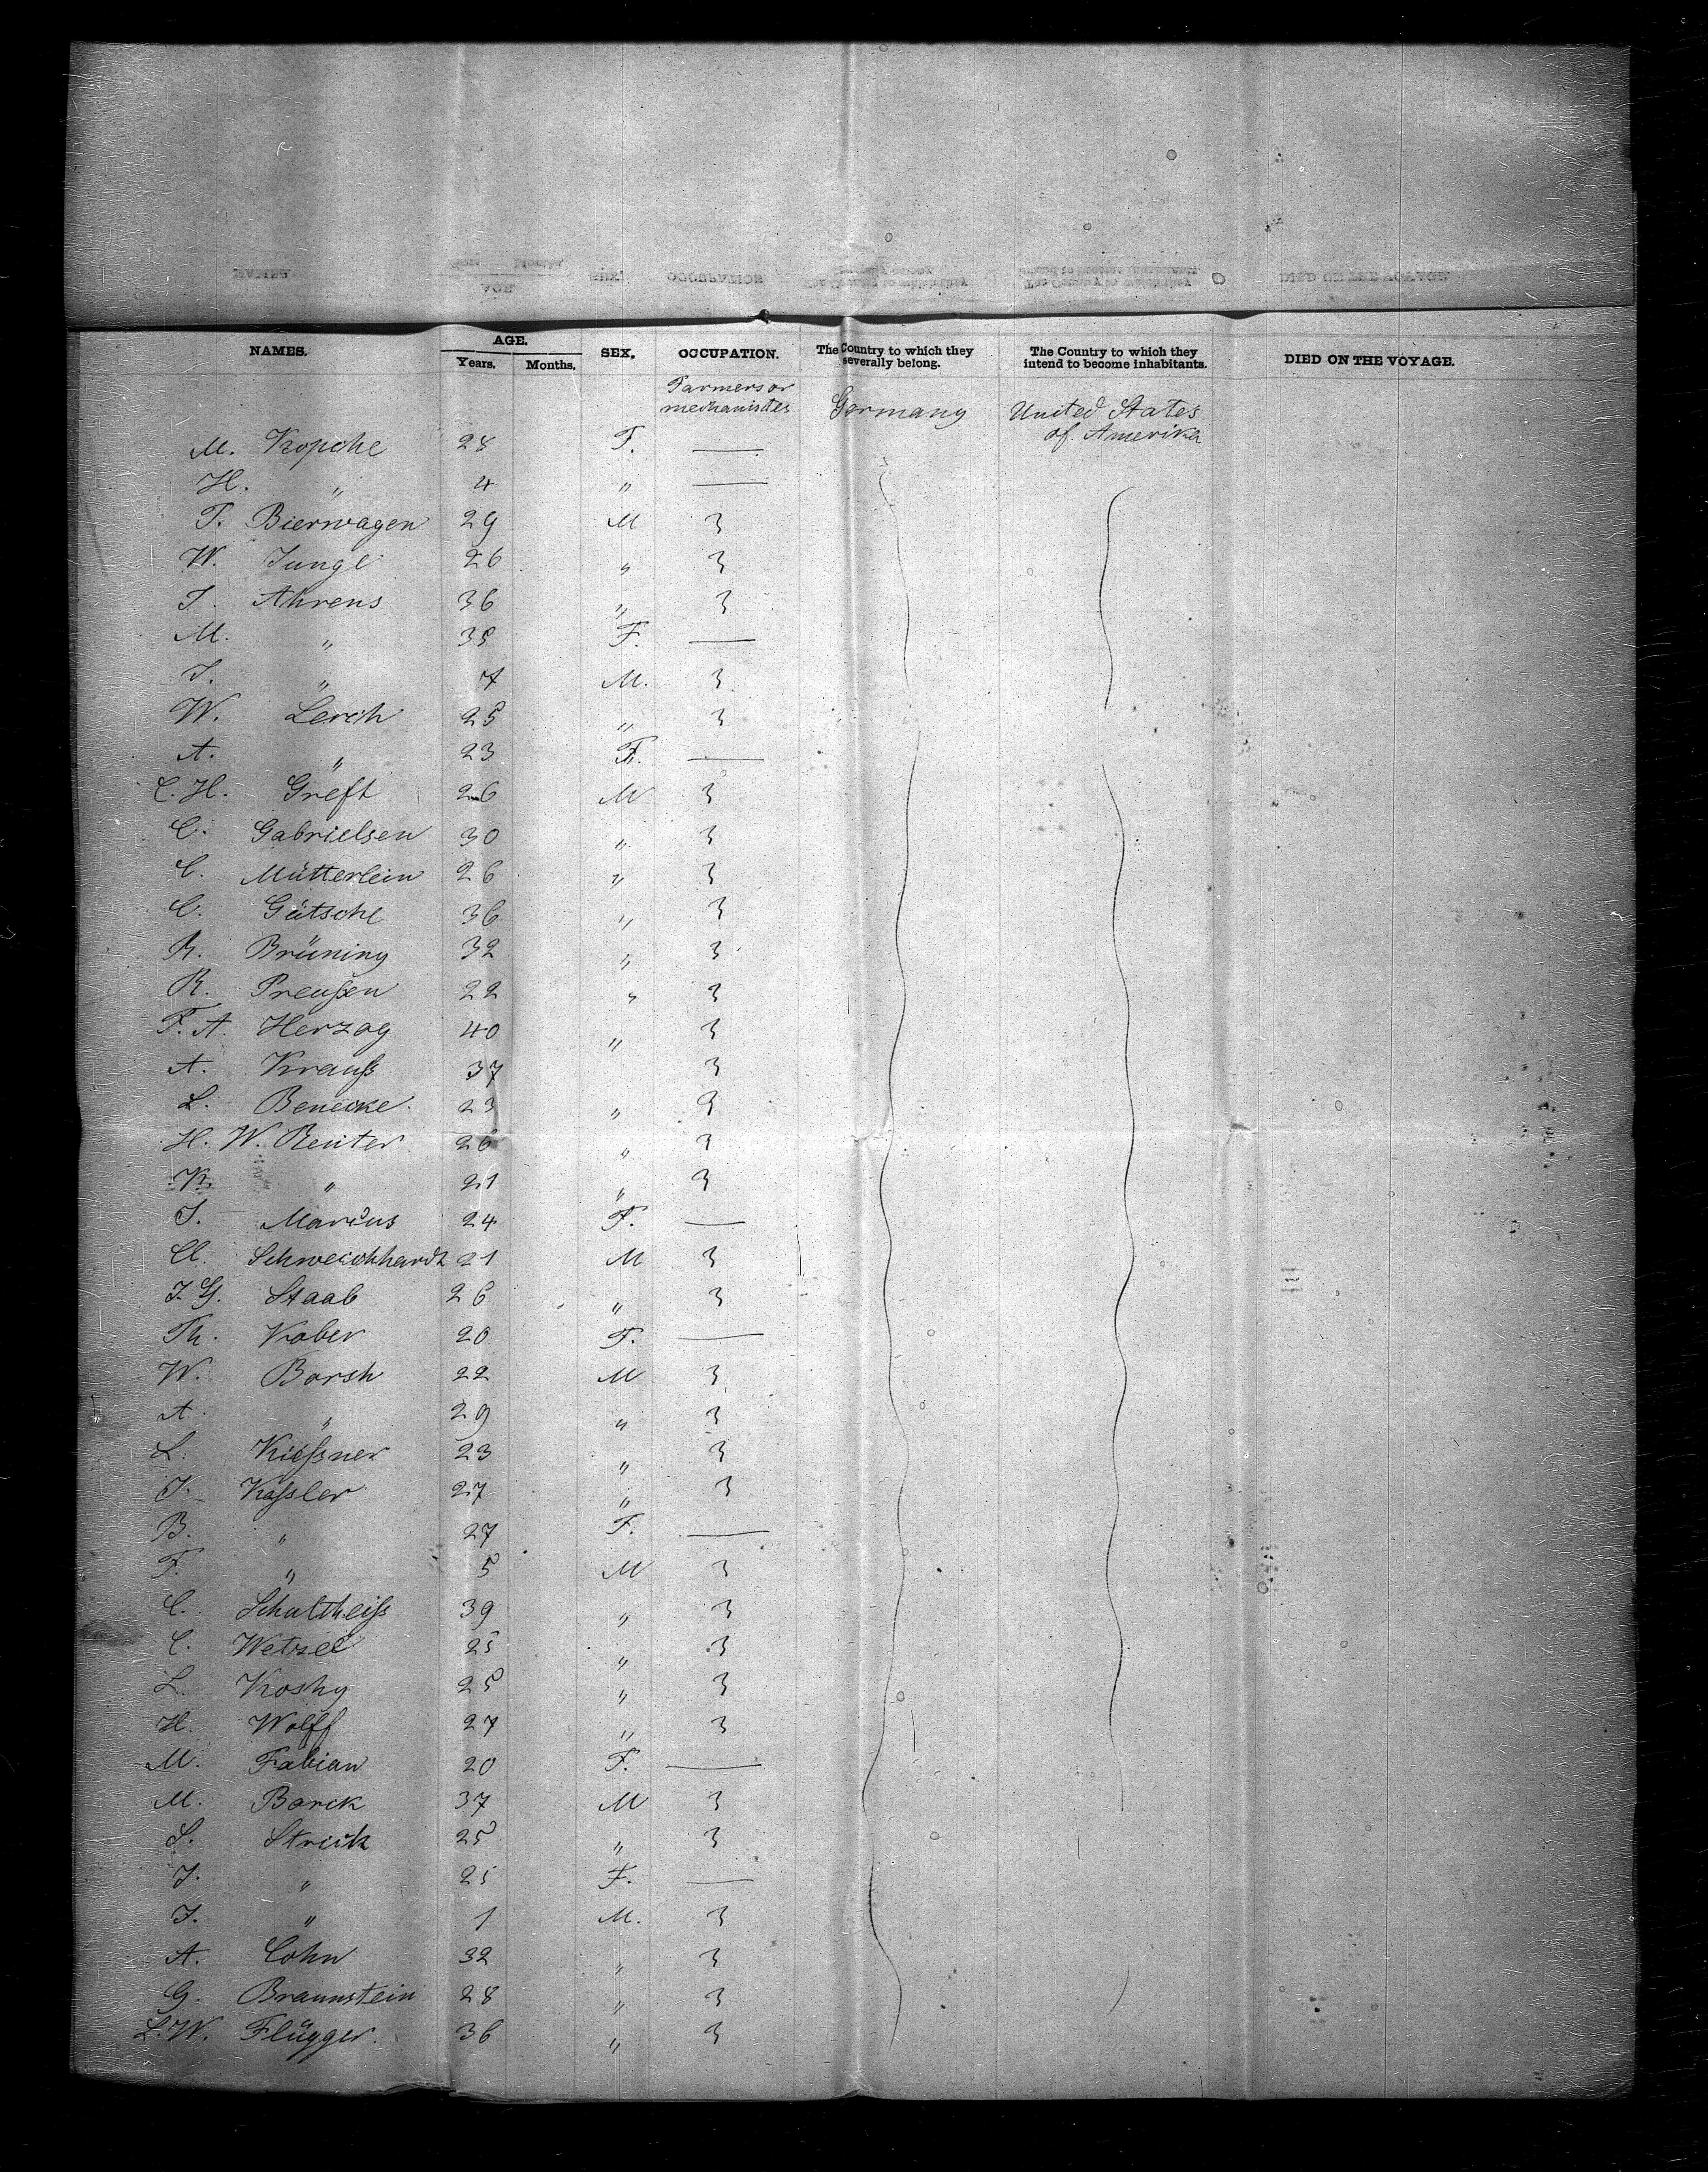 NAMES. AGE. SEX. OCCUPATION. The Country to which they severally belong. The Country to which they intend to become inhabitants. DIED ON THE VOYAGE.
Years. Months.
Farmers or mechanistes Germany United States of Amerika
M. Kopche 28 F. —
H. " 4 " —
T. Bierwagen 29 M 3
W. Junge 26 " 3
J. Ahrens 36 " 3
M. " 35 F. —
J. " 7 M. 3
W. Lerch 25 " 3
A. " 23 F. —
C. H. Greft 26 M 3
C. Gabrielsen 30 " 3
C. Mütterlein 26 " 3
C. Gütsche 36 " 3
R. Brüning 32 " 3
R. Preußen 22 " 3
F. A. Herzog 40 " 3
A. Krauß 37 3
L. Benecke. 23 " 3
H. W. Reuter 26 " 3
K. " 21 " 3
J. Marcus 24 F. —
Cl. Schweickhardt 21 M 3
J. G. Staab 26 " 3
Th. Kober 20 F. —
W. Borsh 22 M 3
A. " 29 " 3
L. Kießner 23 " 3
J. Kassler 27 " 3
B. " 27 F. —
F. " 5 M 3
C. Schultheiß 39 " 3
C. Wetzel 25 " 3
L. Koshy 25 " 3
H. Wolff 27 " 3
M. Fabian 20 F. —
M. Borck 37 M 3
S. Strick 25 " 3
J. " 25 F. —
J. " 1 M. 3
A. Cohn 32 " 3
G. Braunstein 28 " 3
L. W. Flügger. 36 " 3